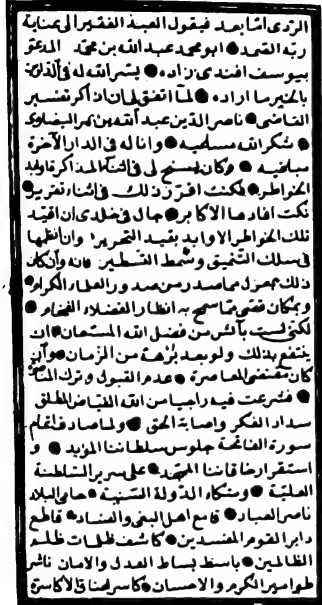 الردى اما بعد فيقول العبد الفقير الى عناية
ربه الصمد ابو محمد عبد الله بن محمد المدعو
بيوسف افندى زاده يسر الله له فى الدارين
بالخير ما اراده لما اتفق لى ان اذاكر تفسير
القاضى ناصر الدين عبد الله بن عمر البيضاوى
شكر الله مساعيه واناله فى الدار الآخرة
مباغيه وكان يسنح لى فى اثناء المذاكرة اوابد
الخواطر فكنت اقرر ذلك فى اثناء تقرير
نكت افادها الاكابر جال فى خلدى ان اقيد
تلك الخواطر الاوابد بقيد التحرير وان انظمها
فى سلك التنميق وسمط التسطير فانه وان كان
ذلك بمعزل مما صدر من صدور العلماء الكرام
وبمكان قصى مما سمح به انظار الفضلاء الفخام
لكنى لست بآئس من فضل الله المستعان ان
ينتفع بذلك ولو بعد برهة من الزمان وان
كان مقتضى المعاصرة عدم القبول وترك المناصرة
فشرعت فيه راجيا من الله الفياض المطلق
سداد الفكر واصابة الحق ولما صادف اتمام
سورة الفاتحة جلوس سلطاننا المؤيد و
استقرار خاقاننا الممجد على سرير السلطنة
العلية ومتكاء الدولة السنية حامى البلاد
ناصر العباد قامع اهل البغى والفساد قاطع
دابر القوم المفسدين كاشف ظلمات ظلم
الظالمين باسط بساط العدل والامان ناشر
طوامير الكرم والاحسان كاسر اعناق الاكاسرة